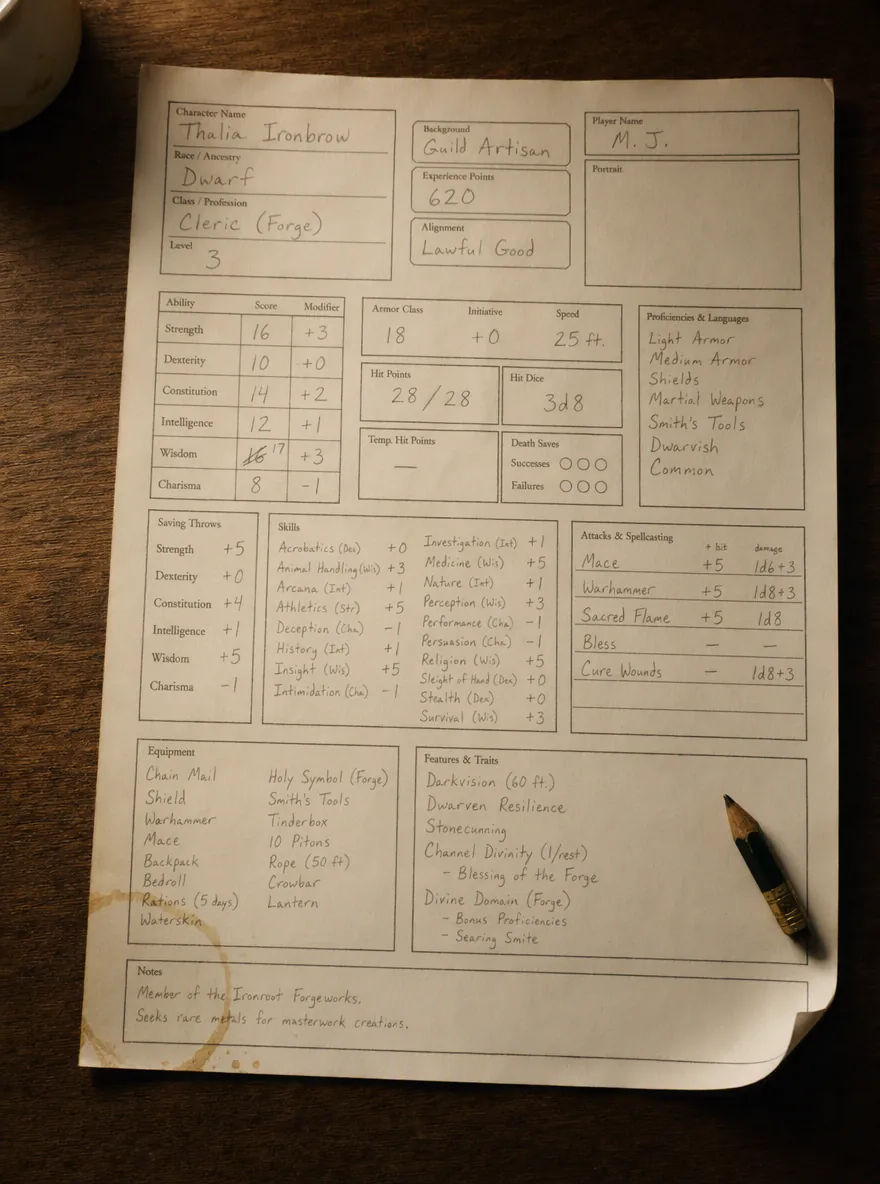 Character Name
Thalia Ironbrow
Race / Ancestry
Dwarf
Class / Profession
Cleric (Forge)
Level
3
Background
Guild Artisan
Experience Points
620
Alignment
Lawful Good
Player Name
M. J.
Portrait
Ability Score Modifier
Strength 16 +3
Dexterity 10 +0
Constitution 14 +2
Intelligence 12 +1
Wisdom 16 17 +3
Charisma 8 -1
Armor Class Initiative Speed
18 +0 25 ft.
Hit Points
28/28
Hit Dice
3d8
Temp. Hit Points
—
Death Saves
Successes
Failures
Proficiencies & Languages
Light Armor
Medium Armor
Shields
Martial Weapons
Smith's Tools
Dwarvish
Common
Saving Throws
Strength +5
Dexterity +0
Constitution +4
Intelligence +1
Wisdom +5
Charisma -1
Skills
Acrobatics (Dex) +0
Animal Handling (Wis) +3
Arcana (Int) +1
Athletics (Str) +5
Deception (Cha) -1
History (Int) +1
Insight (Wis) +5
Intimidation (Cha) -1
Investigation (Int) +1
Medicine (Wis) +5
Nature (Int) +1
Perception (Wis) +3
Performance (Cha) -1
Persuasion (Cha) -1
Religion (Wis) +5
Sleight of Hand (Dex) +0
Stealth (Dex) +0
Survival (Wis) +3
Attacks & Spellcasting
+ hit damage
Mace +5 1d6+3
Warhammer +5 1d8+3
Sacred Flame +5 1d8
Bless — —
Cure Wounds — 1d8+3
Equipment
Chain Mail
Shield
Warhammer
Mace
Backpack
Bedroll
Rations (5 days)
Waterskin
Holy Symbol (Forge)
Smith's Tools
Tinderbox
10 Pitons
Rope (50 ft)
Crowbar
Lantern
Features & Traits
Darkvision (60 ft.)
Dwarven Resilience
Stonecunning
Channel Divinity (1/rest)
- Blessing of the Forge
Divine Domain (Forge)
- Bonus Proficiencies
- Searing Smite
Notes
Member of the Ironroot Forgeworks.
Seeks rare metals for masterwork creations.